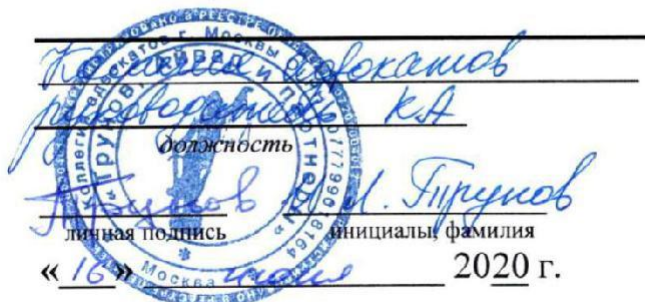 Коллегия адвокатов
руководитель КА
должность
Трунов И. Л. Трунов
личная подпись инициалы, фамилия
«16» июня 2020 г.
Коллегия адвокатов г. Москвы
«Трунов, Айвар и партнеры»
Москва